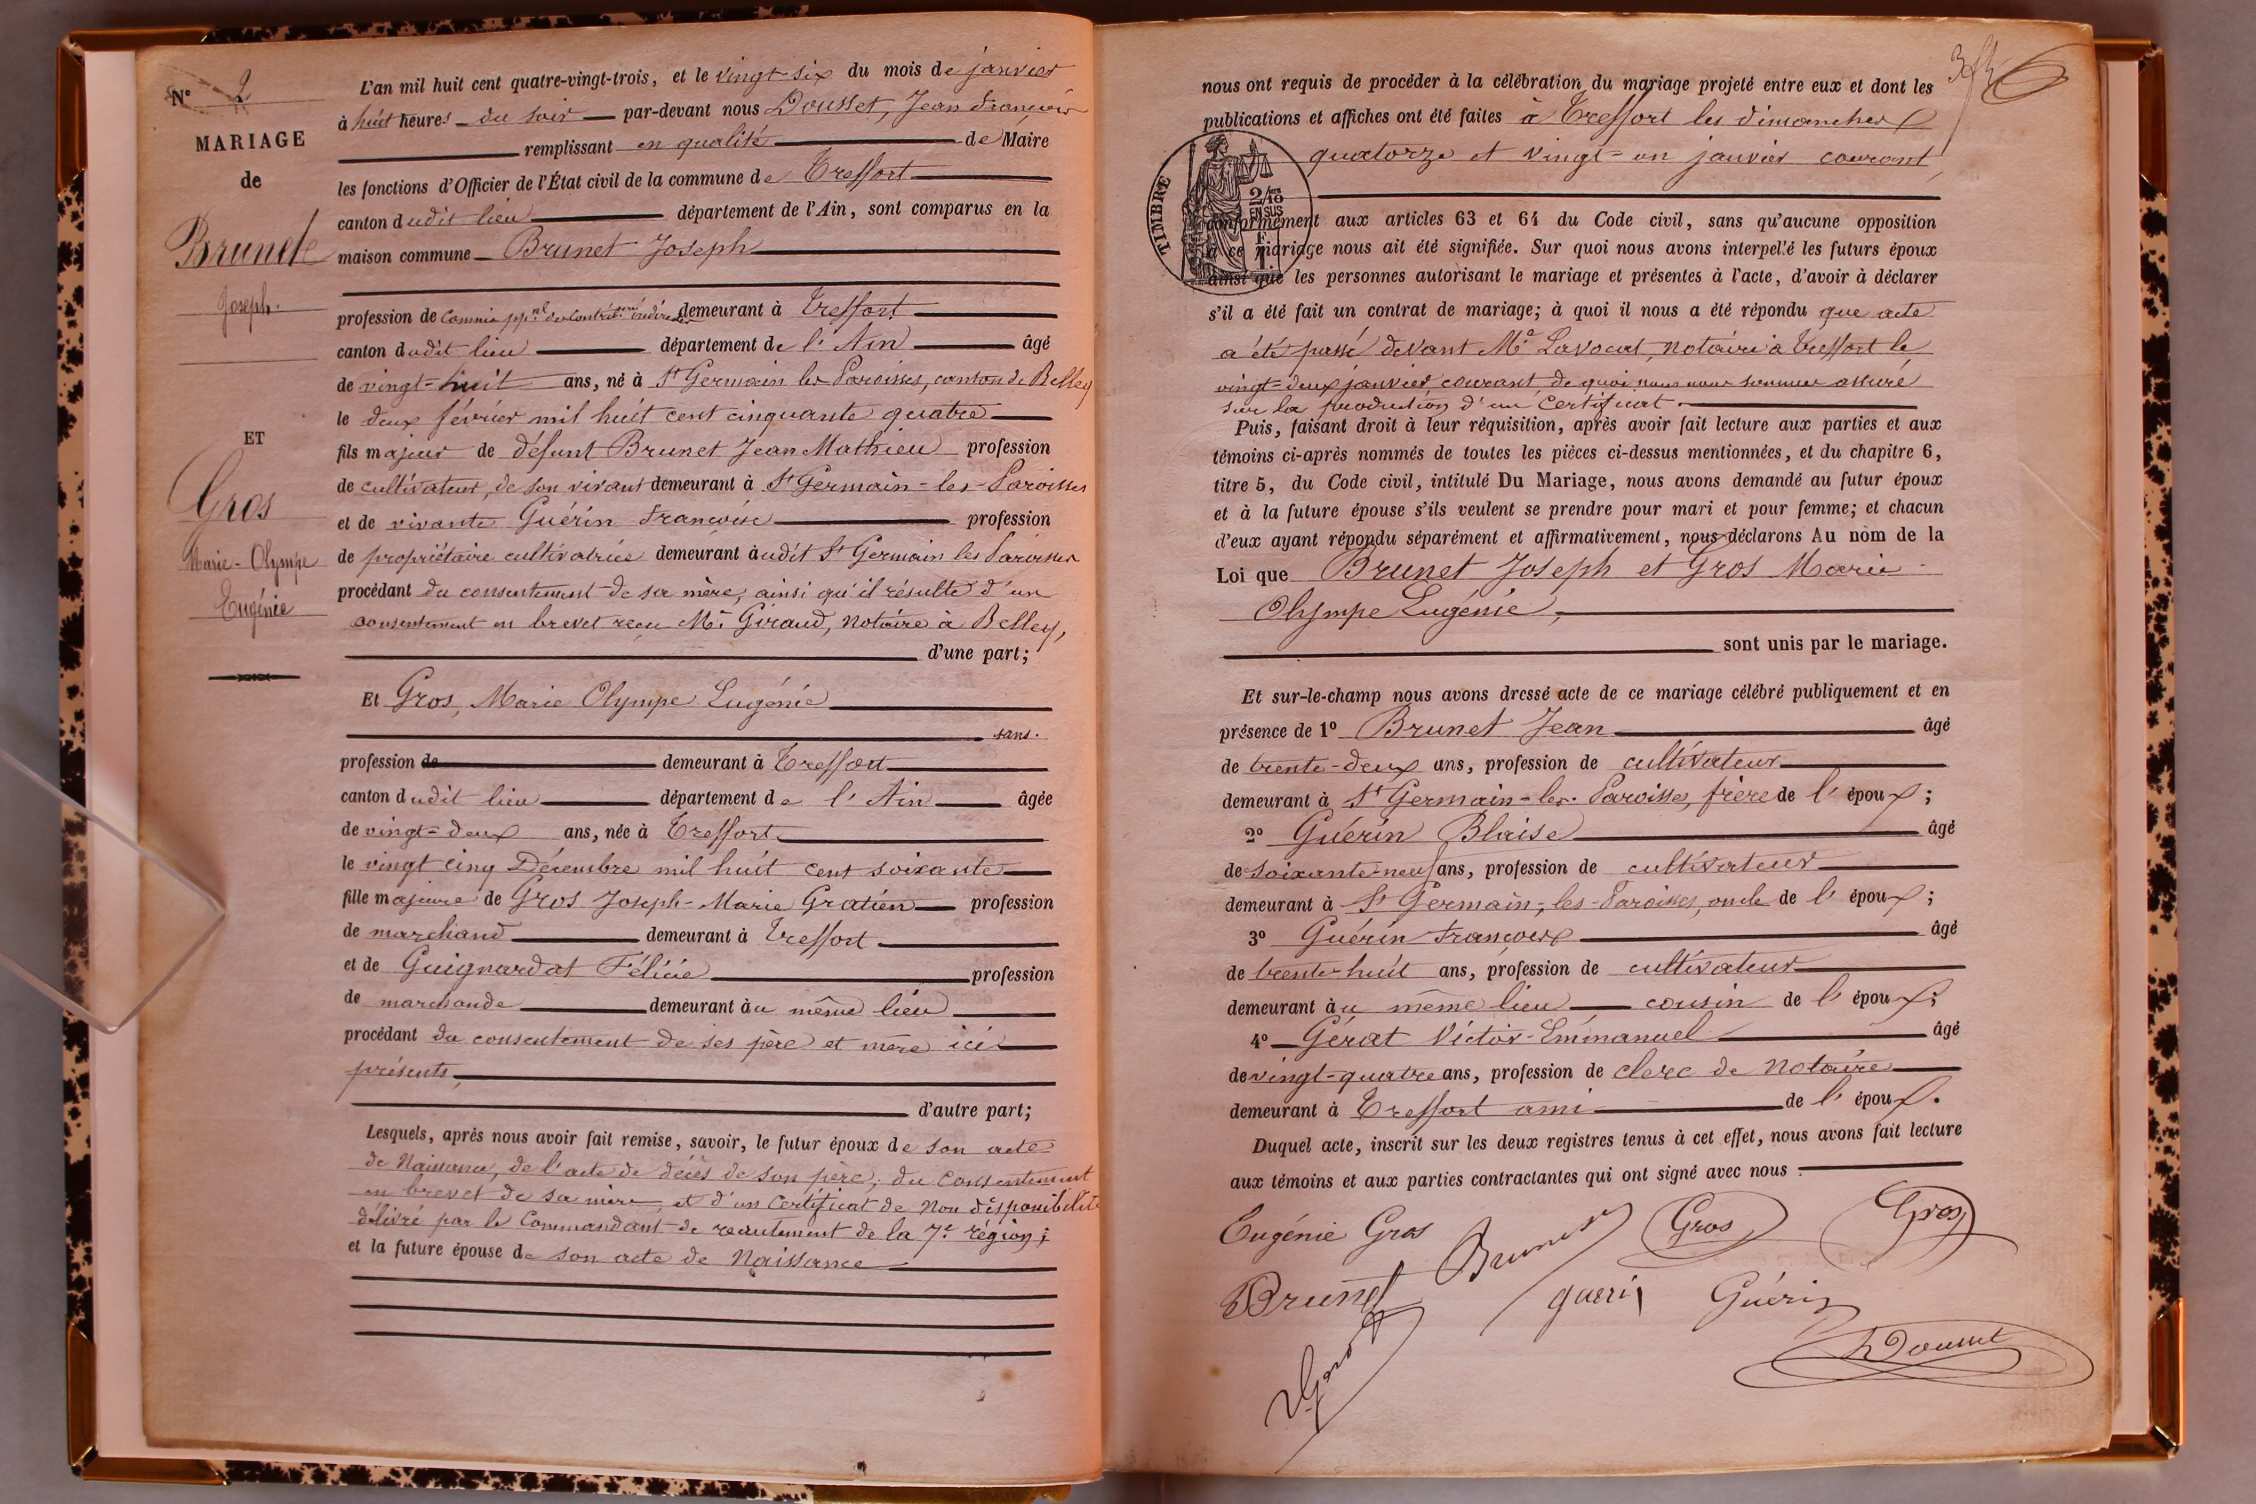 N° 2
MARIAGE
de
Brunet
Joseph.
ET
Gros
Marie-Olympe
Eugénie
L'an mil huit cent quatre-vingt-trois, et le vingt-six du mois de janvier
à huit heures du soir par-devant nous Dousset, Jean François
remplissant en qualité de Maire
les fonctions d'Officier de l'État civil de la commune de Treffort
canton dudit lieu département de l'Ain, sont comparus en la
maison commune Brunet Joseph
profession de Commis demeurant à Treffort
canton dudit lieu département de l'Ain âgé
de vingt-huit ans, né à St Germain les Paroisses, canton de Belley
le deux février mil huit cent cinquante quatre
fils majeur de défunt Brunet Jean Mathieu profession
de cultivateur, de son vivant demeurant à St Germain-les-Paroisses
et de vivante Guérin Françoise profession
de propriétaire cultivatrice demeurant àudit St Germain les Paroisses
procédant du consentement de sa mère, ainsi qu'il résulte d'un
consentement en brevet reçu Me Giraud, notaire à Belley,
d'une part;
Et Gros, Marie Olympe Eugénie
sans
profession de demeurant à Treffort
canton dudit lieu département de l'Ain âgée
de vingt-deux ans, née à Treffort
le vingt cinq Décembre mil huit cent soixante
fille majeure de Gros Joseph-Marie Gratien profession
de marchand demeurant à Treffort
et de Guignardat Félicie profession
de marchande demeurant àu même lieu
procédant du consentement de ses père et mère ici
présents,
d'autre part;
Lesquels, après nous avoir fait remise, savoir, le futur époux de son acte
de Naissance, de l'acte de décès de son père, du consentement
en brevet de sa mère, et d'un Certificat de Non disponibilité
délivré par le Commandant de recrutement de la 7e région;
et la future épouse de son acte de Naissance
nous ont requis de procéder à la célébration du mariage projeté entre eux et dont les
publications et affiches ont été faites à Treffort les dimanches
quatorze et vingt-un janvier courant
TIMBRE
2/10
EN SUS
conformément aux articles 63 et 64 du Code civil, sans qu'aucune opposition
à ce mariage nous ait été signifiée. Sur quoi nous avons interpelé les futurs époux
ainsi que les personnes autorisant le mariage et présentes à l'acte, d'avoir à déclarer
s'il a été fait un contrat de mariage; à quoi il nous a été répondu que acte
a été passé devant Me Lavocat, notaire à Treffort le
vingt-deux janvier courant de quoi nous nous sommes assuré
sur la production d'un Certificat.
Puis, faisant droit à leur réquisition, après avoir fait lecture aux parties et aux
témoins ci-après nommés de toutes les pièces ci-dessus mentionnées, et du chapitre 6,
titre 5, du Code civil, intitulé Du Mariage, nous avons demandé au futur époux
et à la future épouse s'ils veulent se prendre pour mari et pour femme; et chacun
d'eux ayant répondu séparément et affirmativement, nous déclarons Au nom de la
Loi que Brunet Joseph et Gros Marie
Olympe Eugénie,
sont unis par le mariage.
Et sur-le-champ nous avons dressé acte de ce mariage célébré publiquement et en
présence de 1° Brunet Jean âgé
de trente-deux ans, profession de cultivateur
demeurant à St Germain-les-Paroisses, frère de l'époux;
2° Guérin Blaise âgé
de soixante-neuf ans, profession de cultivateur
demeurant à St Germain-les-Paroisses, oncle de l'époux;
3° Guérin François âgé
de trente-huit ans, profession de cultivateur
demeurant àu même lieu cousin de l'époux;
4° Gérat Victor-Emmanuel âgé
de vingt-quatre ans, profession de clerc de Notaire
demeurant à Treffort ami de l'époux.
Duquel acte, inscrit sur les deux registres tenus à cet effet, nous avons fait lecture
aux témoins et aux parties contractantes qui ont signé avec nous
Eugénie Gros Brunet Gros Gros
Brunet guerin Guérin
Dousset